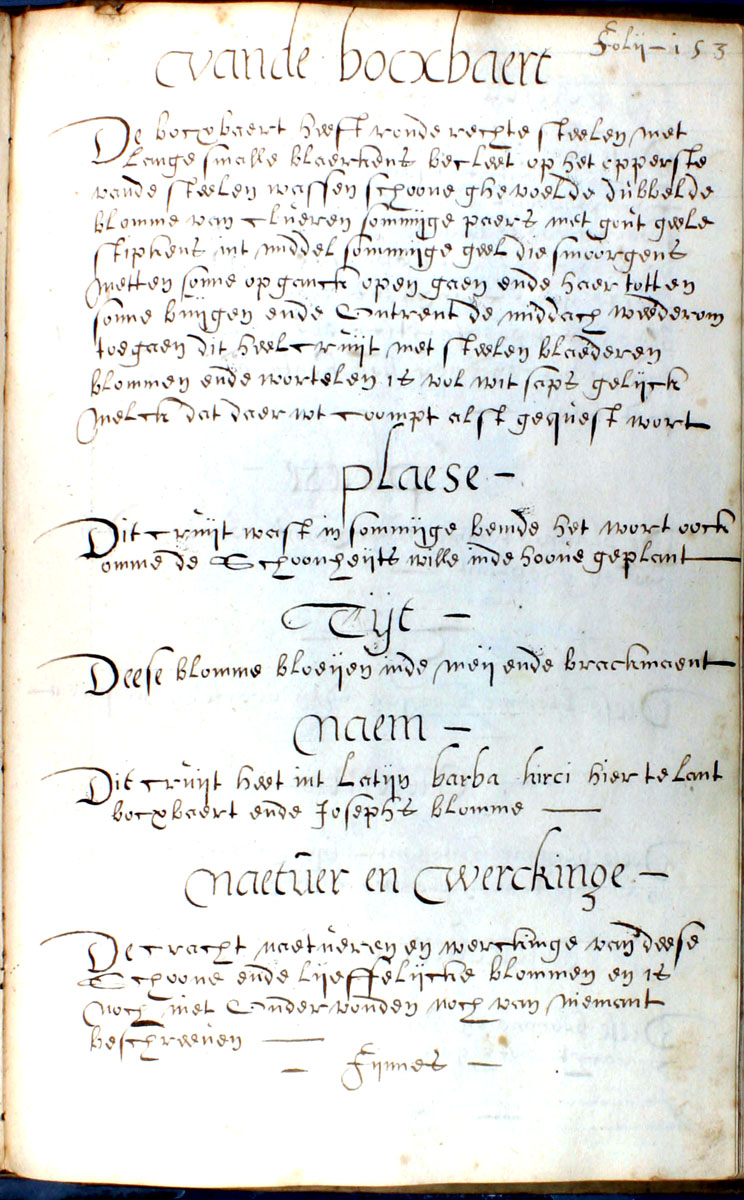 Folij - 153
vande bocxbaert
De bocxbaert heeft ronde rechte steelen met
Lange smalle blaerkens becleet op het opperste
vande steelen wassen schoone ghevoelde dubbelde
blomme van clueren sommijge paers met gout geele
stipkens int middel sommijge geel die smoorgens
Metten sonne opganck open gaen ende haer totten
sonne buijgen ende Ontrent de middach weederom
toegaen dit heel cruijt met steelen blaederen
blommen ende wortelen is vol wit saps gelijck
Melck dat daer wt coompt alst gequest wort
plaese -
Dit cruijt wast in sommijge bemde het wort oock
omme de Schoonheijts wille inde hoove geplant
Tijt -
Deese blomme bloeijen inde meij ende brackmaent
Naem -
Dit cruijt heet int Latijn barba hirci hier te lant
bocxbaert ende Josephs blomme
Naetuer en Werckinge -
De cracht naetueren en werckinge van deese
Schoone ende lijeffelijcke blommen en is
Noch niet Ondervonden noch van niemant
beschreeven
- Fijnnes -